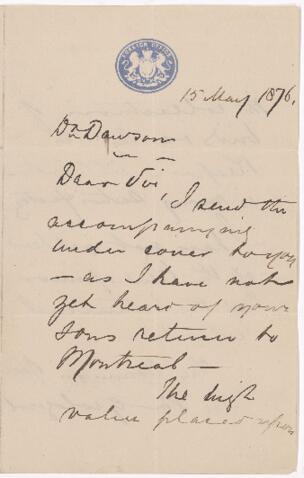 15 May 1876.
Dr. Dawson
Dear Sir,
I send the
accompanying
under cover to you
— as I have not
yet heard of your
sons return to
Montreal —
The high
value placed upon